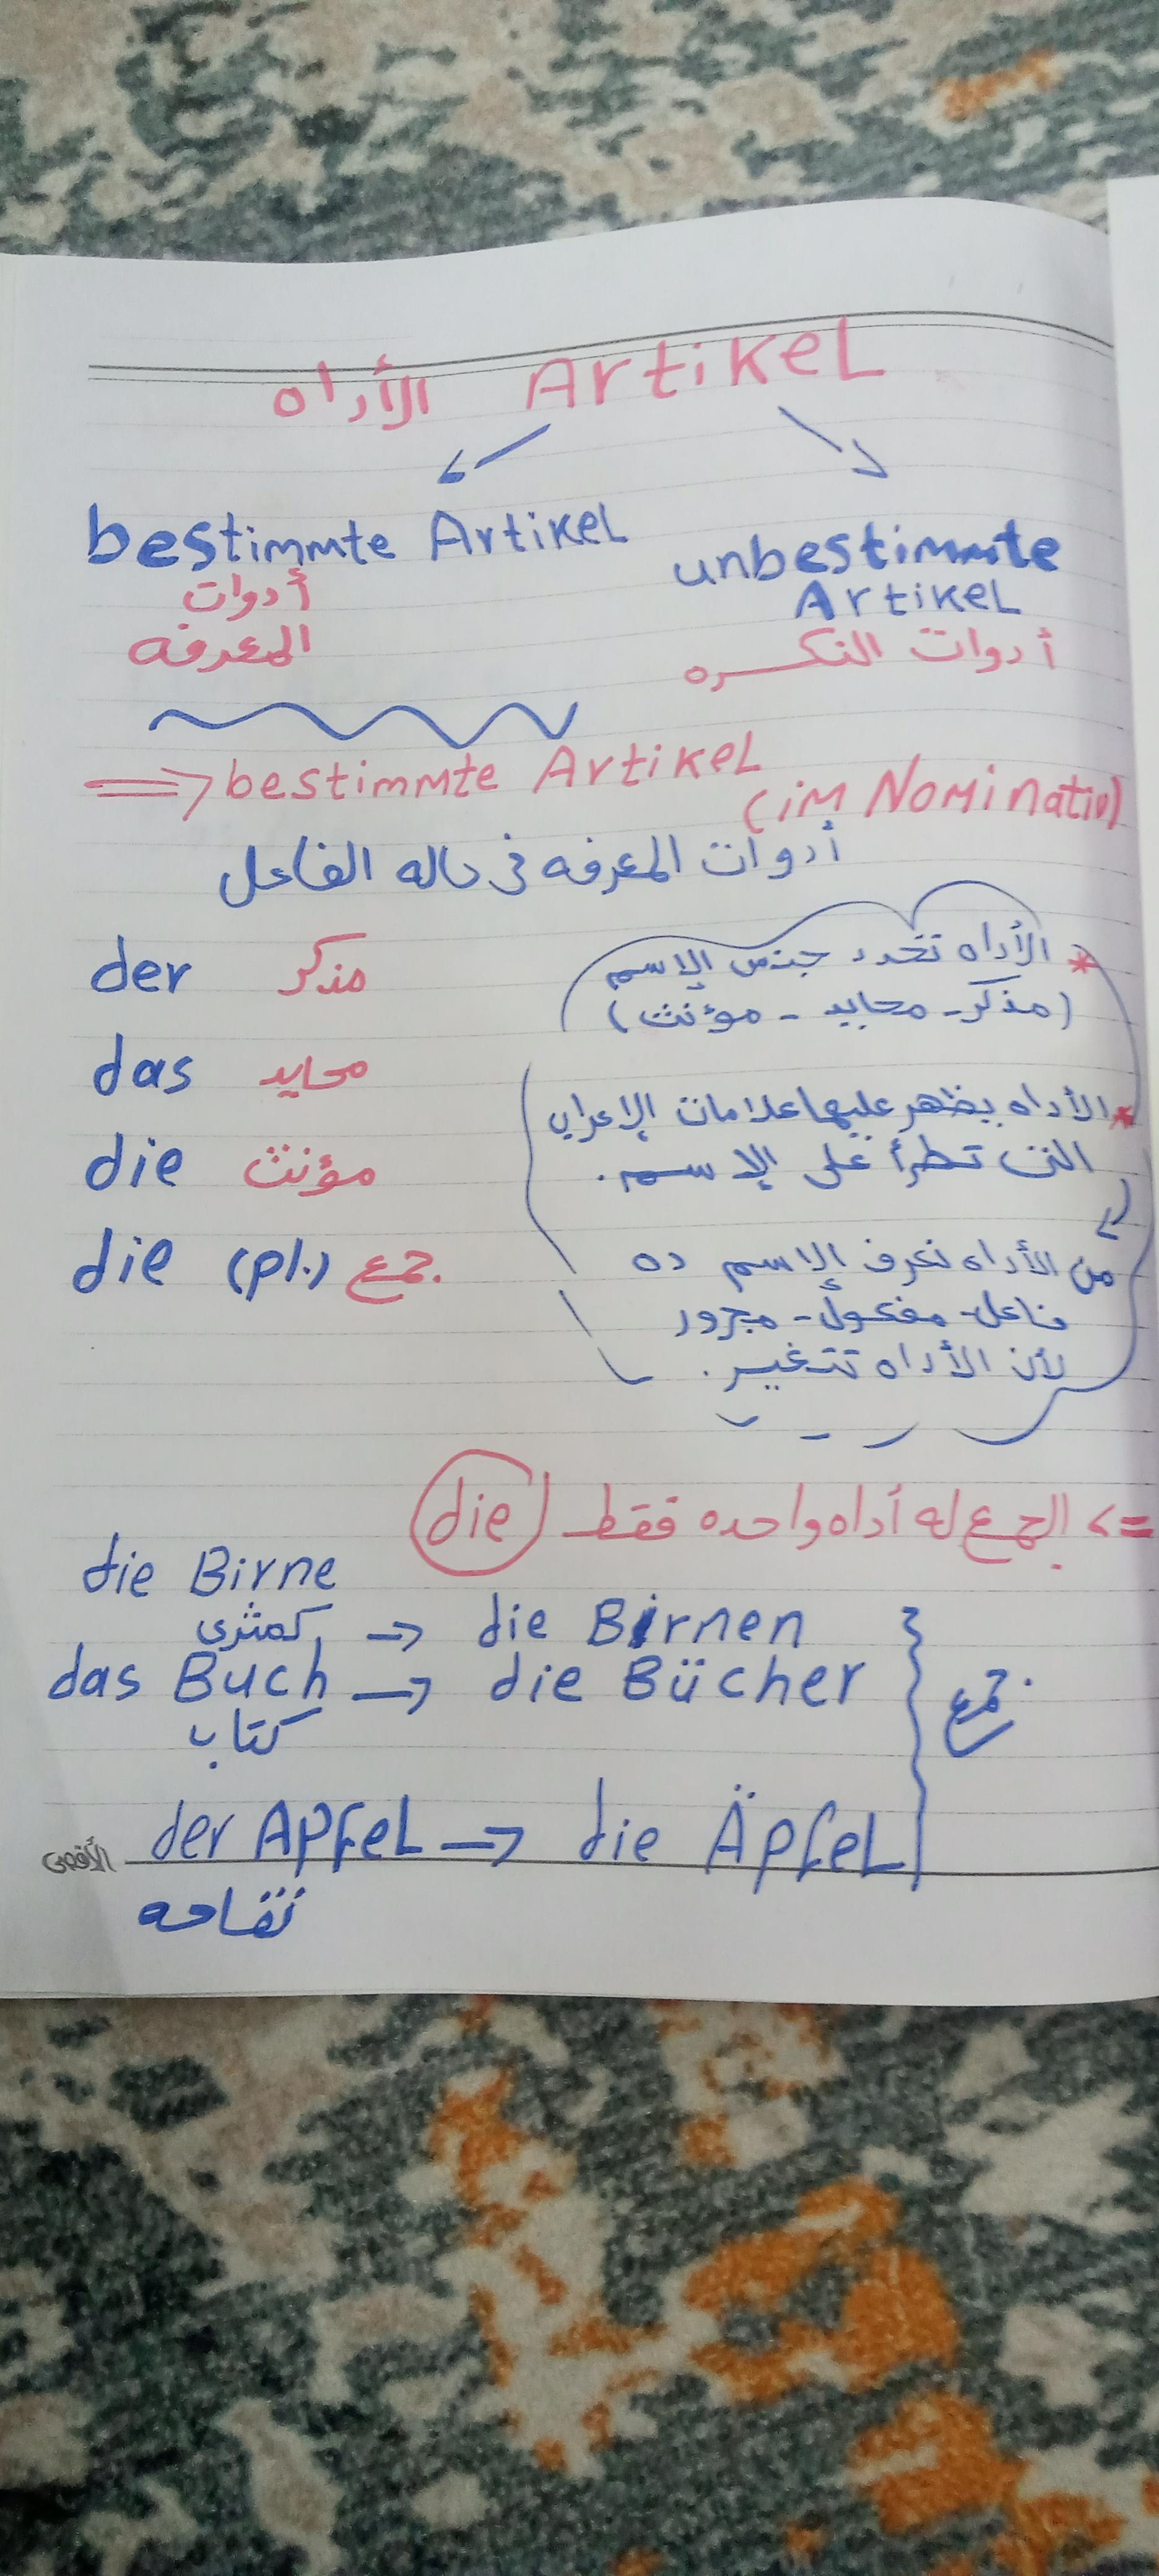 الأداه Artikel
bestimmte Artikel
أدوات
المعرفه
unbestimmte
Artikel
أدوات النكره
=> bestimmte Artikel
(im Nominativ)
أدوات المعرفه في حاله الفاعل
der مذكر
das محايد
die مؤنث
die (pl.) جمع
* الأداه تحدد جنس الإسم
(مذكر - محايد - مؤنث)
* الأداه يظهر عليها علامات الإعراب
التى تطرأ على الإسم.
من الأداه نعرف الإسم ده
فاعل - مفعول - مجرور
لأن الأداه تتغير.
=> الجمع له أداه واحده فقط die
die Birne
كمثرى -> die Birnen
das Buch -> die Bücher
كتاب
جمع
der Apfel -> die Äpfel
الأقصى
تفاحه